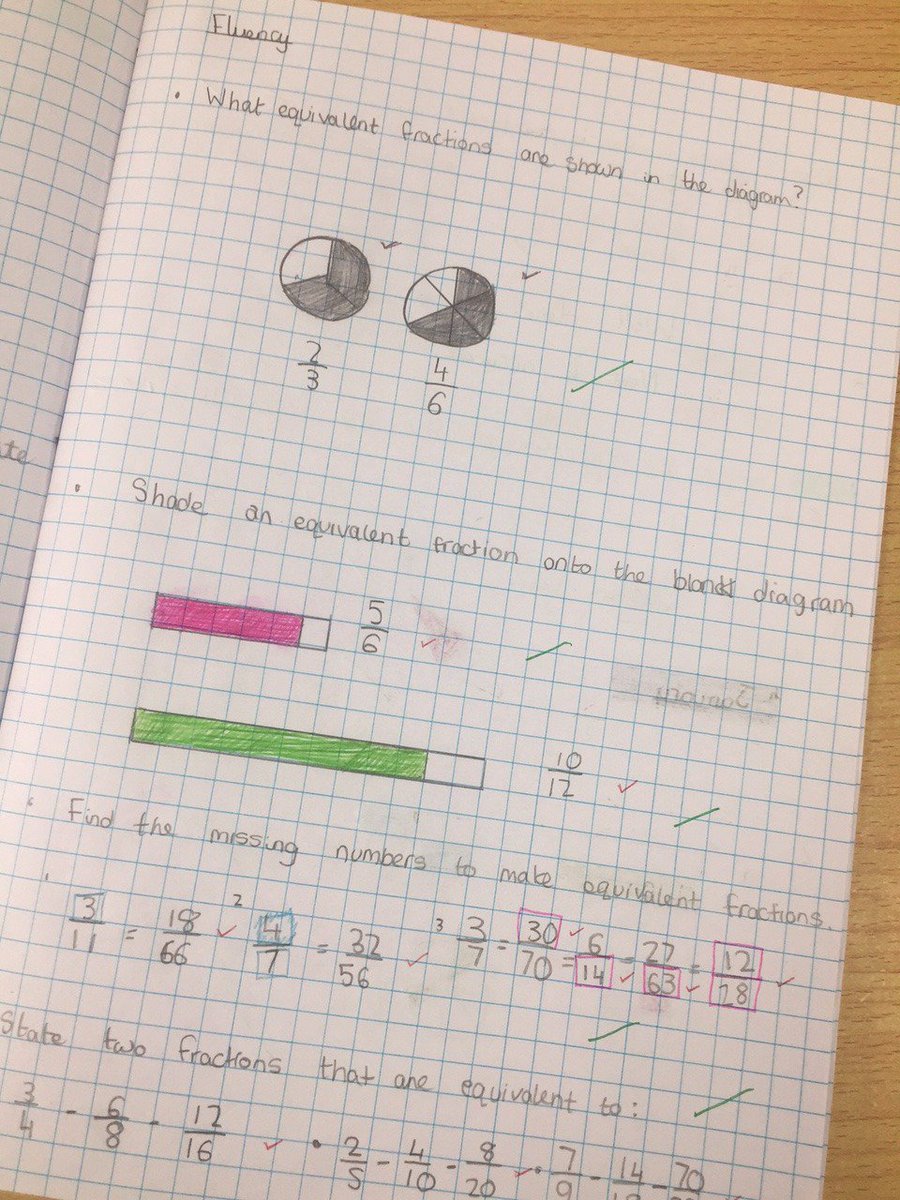 Fluency
• What equivalent fractions are shown in the diagram?
2/3 4/6
• Shade an equivalent fraction onto the blank diagram
5/6
10/12
• Find the missing numbers to make equivalent fractions.
3/11 = 18/66 2 4/7 = 32/56 3 3/7 = 30/70 = 6/14 = 27/63 = 12/28
State two fractions that are equivalent to:
3/4 - 6/8 - 12/16 • 2/5 - 4/10 - 8/20 • 7/9 - 14/ - 70/